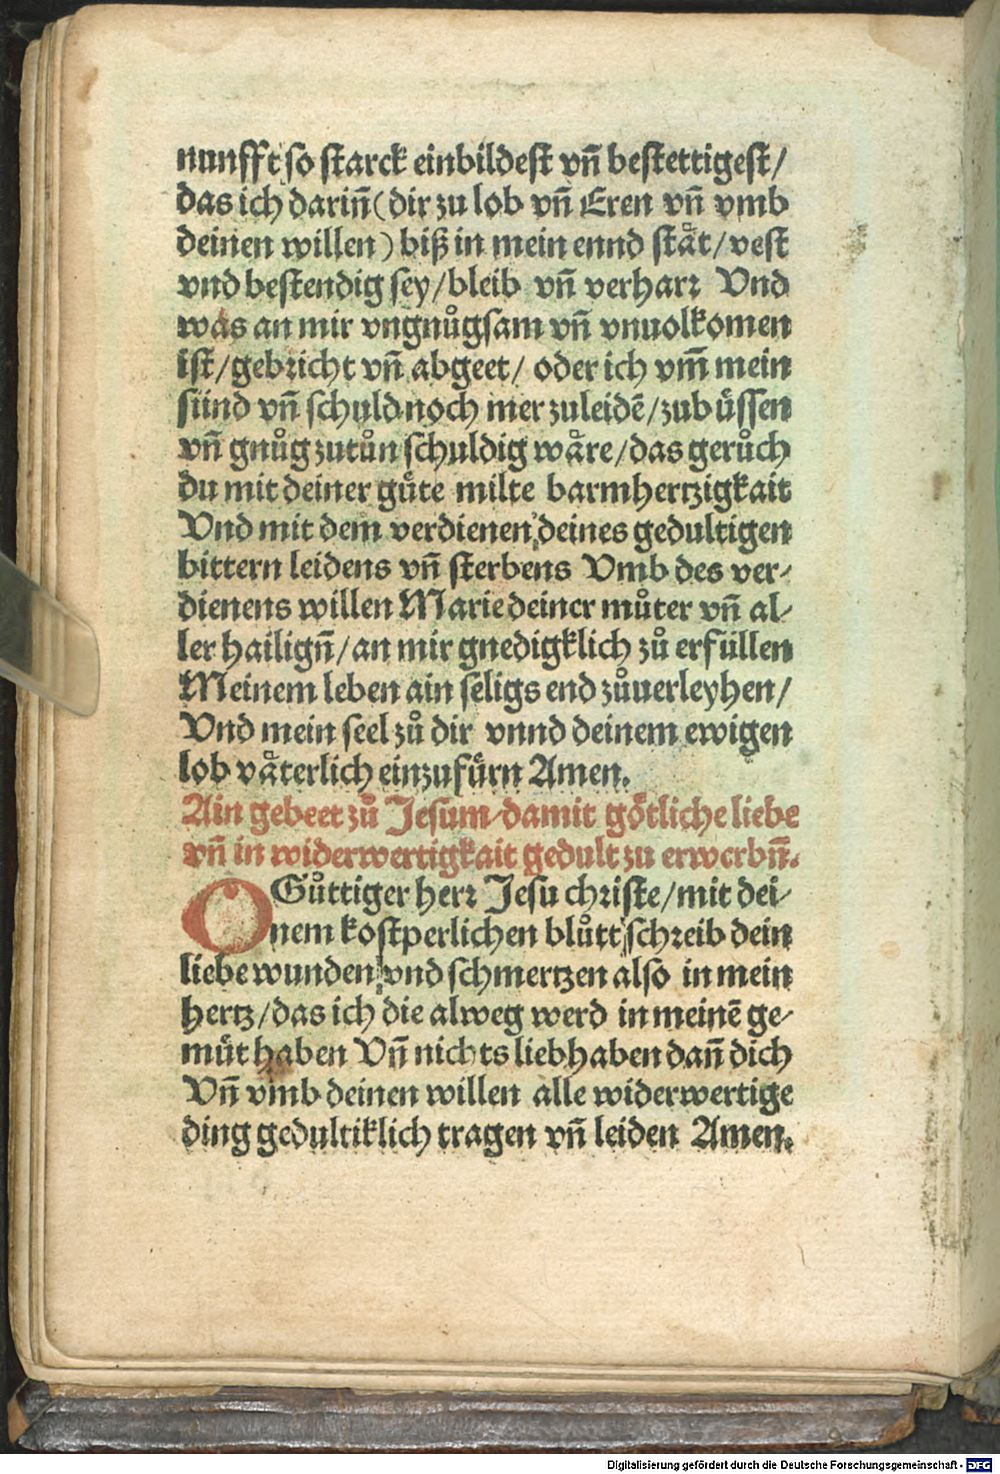 nunfft so starck einbildest vn̄ bestettigest/
das ich darin̄ (dir zu lob vn̄ Eren vn̄ vmb
deinen willen) biß in mein ennd stǎt/vest
vnd bestendig sey/bleib vn̄ verharꝛ Vnd
was an mir vngnůgsam vn̄ vnuolkomen
ist/gebꝛicht vn̄ abgeet/ oder ich vm̄ mein
sünd vn̄ schuld noch mer zuleidē/zubüssen
vn̄ gnůg zutůn schuldig wåre/das gerůch
du mit deiner gůte milte barmhertzigkait
Vnd mit dem verdienen deines gedultigen
bittern leidens vn̄ sterbens Vmb des ver⸗
dienens willen Marie deiner můter vn̄ al⸗
ler hailign̄/an mir gnedigklich zů erfüllen
Meinem leben ain seligs end zůuerleyhen/
Vnd mein seel zů dir vnnd deinem ewigen
lob våterlich einzufürn Amen.
Ain gebeet zů Jesum/damit götliche liebe
vn̄ in widerwertigkait gedult zu erwerbn̄.
O Gůttiger herꝛ Jesu chꝛiste/mit dei⸗
nem kostperlichen blůtt schꝛeib dein
liebe wunden vnd schmertzen also in mein
hertz/das ich die alweg werd in meinē ge⸗
müt haben Vn̄ nichts liebhaben dan̄ dich
Vn̄ vmb deinen willen alle widerwertige
ding gedultiklich tragen vn̄ leiden Amen.
Digitalisierung gefördert durch die Deutsche Forschungsgemeinschaft - DFG